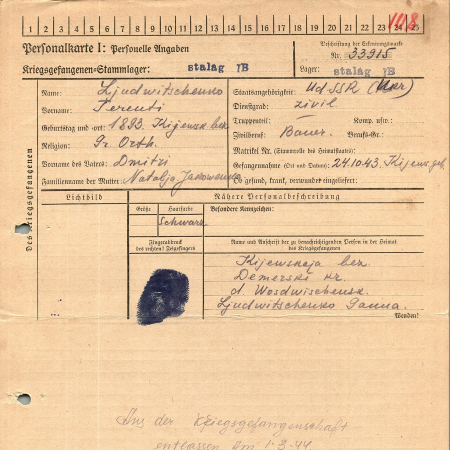 1 2 3 4 5 6 7 8 9 10 11 12 13 14 15 16 17 18 19 20 21 22 23 24 25
Personalkarte I: Personelle Angaben
Kriegsgefangenen-Stammlager: stalag IB
Beschriftung der Erkennungsmarke
Nr. 33915
Lager: stalag IB
Des Kriegsgefangenen
Name: Ljudwitschenko
Vorname: Terenti
Geburtstag und -ort: 1893. Kijewsk. bez.
Religion: Gr. Orth.
Vorname des Vaters: Dmitri
Familienname der Mutter: Natalja
Staatsangehörigkeit: UdSSR (Ukr)
Dienstgrad: zivil
Truppenteil: Komp. usw.:
Zivilberuf: Bauer. Berufs-Gr.:
Matrikel Nr. (Stammrolle des Heimatstaates):
Gefangennahme (Ort und Datum): 24.10.43. Kijewsk. geb.
Ob gesund, krank, verwundet eingeliefert:
Lichtbild
Nähere Personalbeschreibung
Größe Haarfarbe Besondere Kennzeichen:
Schwarz.
Fingerabdruck
des rechten! Zeigefingers
Name und Anschrift der zu benachrichtigenden Person in der Heimat
des Kriegsgefangenen
Kijewskaja bez.
Demerski kr.
d. Wosdwischensk.
Ljudwitschenko Ganna.
Wenden!
Aus der Kriegsgefangenschaft
entlassen am 1.3.44.